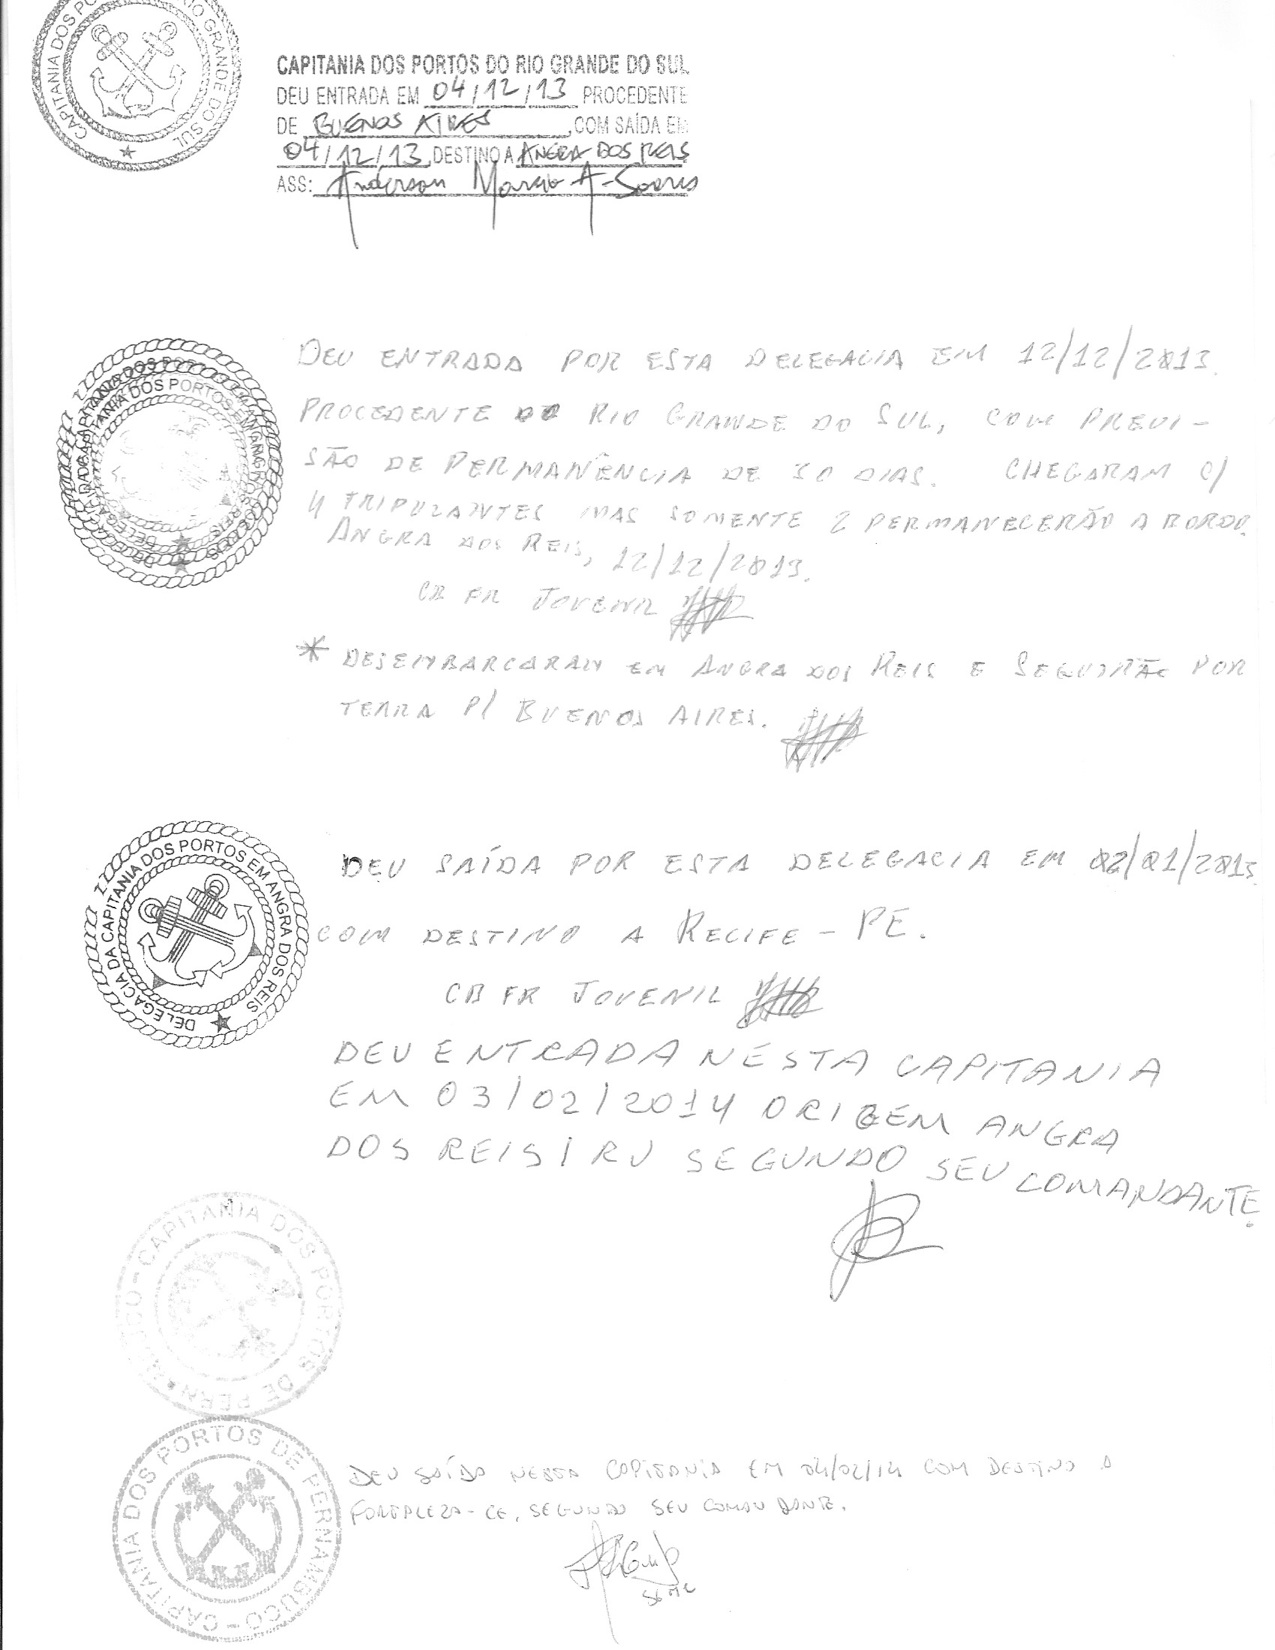 CAPITANIA DOS PORTOS DO RIO GRANDE DO SUL
CAPITANIA DOS PORTOS DO RIO GRANDE DO SUL
DEU ENTRADA EM 04/12/13 PROCEDENTE
DE BUENOS AIRES, COM SAÍDA EM
04/12/13, DESTINO A ANGRA DOS REIS
ASS: Anderson Marcio A. Soares
DELEGACIA DA CAPITANIA DOS PORTOS EM ANGRA DOS REIS
DEU ENTRADA POR ESTA DELEGACIA EM 12/12/2013.
PROCEDENTE DO RIO GRANDE DO SUL, COM PREVI-
SÃO DE PERMANÊNCIA DE 30 DIAS. CHEGARAM C/
4 TRIPULANTES MAS SOMENTE 2 PERMANECERÃO A BORDO.
ANGRA DOS REIS, 12/12/2013.
CB FR JOVENIL
* DESEMBARCARAM EM ANGRA DOS REIS E SEGUIRÃO POR
TERRA P/ BUENOS AIRES.
DELEGACIA DA CAPITANIA DOS PORTOS EM ANGRA DOS REIS
DEU SAÍDA POR ESTA DELEGACIA EM 02/01/2013
COM DESTINO A RECIFE - PE.
CB FR JOVENIL
DEU ENTRADA NESTA CAPITANIA
EM 03/02/2014 ORIGEM ANGRA
DOS REIS/RJ SEGUNDO SEU COMANDANTE.
CAPITANIA DOS PORTOS DE PERNAMBUCO
CAPITANIA DOS PORTOS DE PERNAMBUCO
DEU SAÍDA NESTA CAPITANIA EM 04/02/14 COM DESTINO A
FORTALEZA-CE, SEGUNDO SEU COMANDANTE.